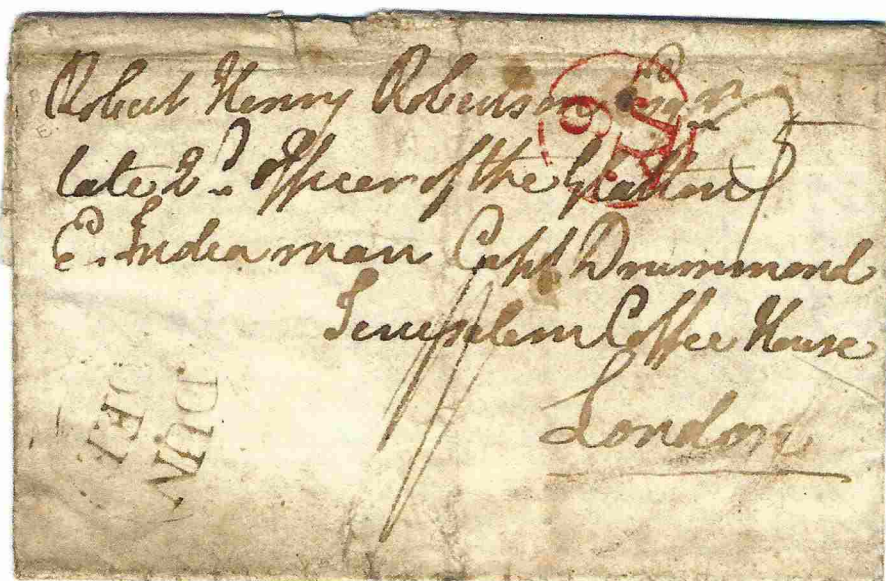 Robert Henry Robertson Esqr.
late 2d. Officer of the Glatton
E. India man Capt Drummond
Jerusalem Coffee House
London
DUN